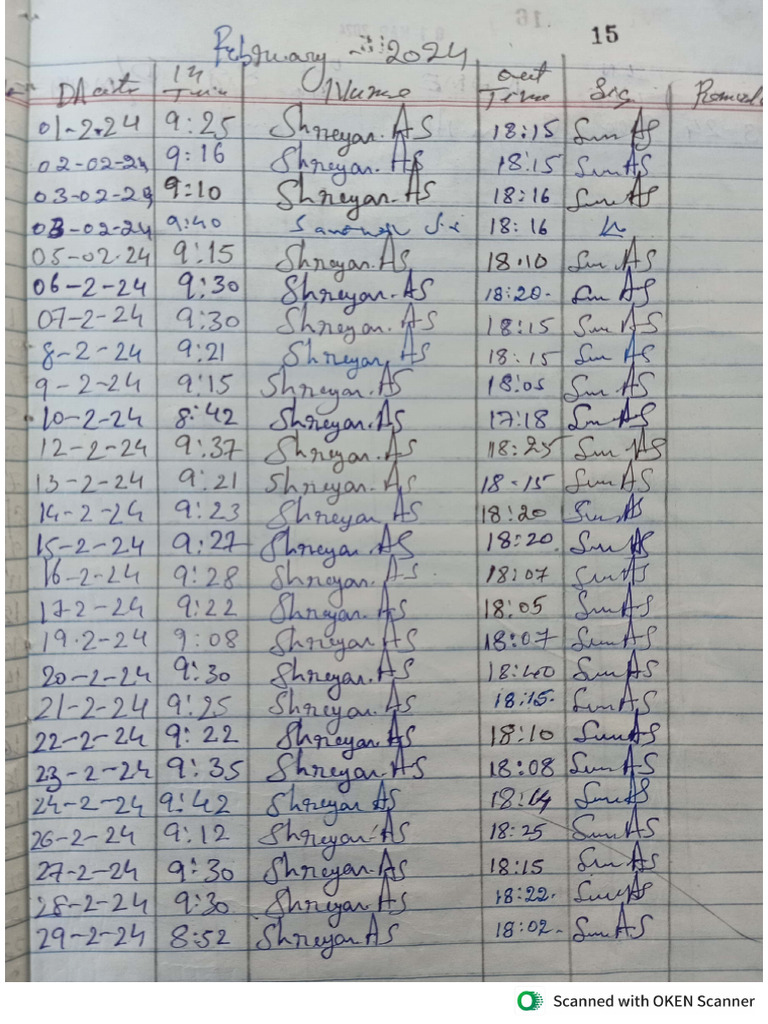 15
February 2024
In Name out Sig
Time
01-2-24 9:25 Shreyan.AS 18:15 AS
02-02-24 9:16 Shreyan.AS 18:15 AS
03-02-24 9:10 Shreyan.AS 18:16 AS
03-02-24 9:40 18:16
05-02-24 9:15 Shreyan.AS 18:10 AS
06-2-24 9:30 Shreyan.AS 18:20 AS
07-2-24 9:30 Shreyan.AS 18:15 AS
8-2-24 9:21 Shreyan.AS 18:15 AS
9-2-24 9:15 Shreyan.AS 18:05 AS
10-2-24 8:42 Shreyan.AS 17:18 AS
12-2-24 9:37 Shreyan.AS 18:25 AS
13-2-24 9:21 Shreyan.AS 18-15 AS
14-2-24 9:23 Shreyan AS 18:20 AS
15-2-24 9:27 Shreyan.AS 18:20 AS
16-2-24 9:28 Shreyan.AS 18:07 AS
17-2-24 9:22 Shreyan.AS 18:05 AS
19-2-24 9:08 Shreyan.AS 18:07 AS
20-2-24 9:30 Shreyan.AS 18:40 AS
21-2-24 9:25 Shreyan.AS 18:15 AS
22-2-24 9:22 Shreyan.AS 18:10 AS
23-2-24 9:35 Shreyan.AS 18:08 AS
24-2-24 9:42 Shreyan AS 18:14 AS
26-2-24 9:12 Shreyan.AS 18:25 AS
27-2-24 9:30 Shreyan.AS 18:15 AS
28-2-24 9:30 Shreyan.AS 18:22 AS
29-2-24 8:52 Shreyan AS 18:02 AS
Scanned with OKEN Scanner